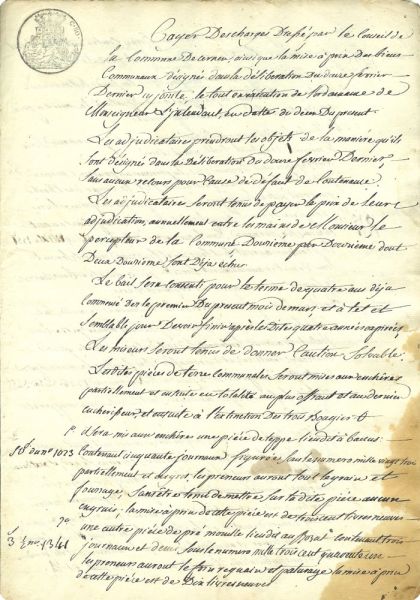 Cayer Des charges Dressé par le Conseil de
la Commune De ainsi que la mise à prix des biens
Communaux désignés dans la délibération Du douze fevrier
Dernier cy jointe le tout en exécution de l'ordonnance de
Monseigneur L'jntendant, en datte du Du present
Les adjudicataires prendront les objets de la maniere qu'ils
sont désignés dans la Déliberation Du douze fevrier Dernier
sans aucun retour pour Cause de défaut de Contenance
Les adjudicataires Seront tenus de payer le prix de leur
adjudication, annuellement entre les mains de Monsieur le
percepteur de la Commune Douzieme par Douzieme dont
Deux Douzieme sont Déja échus
Le bail sera consenti pour le terme de quatre ans déja
Commencé des le premier Du present mois de mars et à tel et
semblable jour Devoir finir après les Dites quatre années expirées
Les miseurs Seront tenus de donner Caution Solvable
Lesdittes pièces de terre Communales Seront mises aux enchères
partiellement et ensuite en totalité au plus offrant et au dernier
encherisseur, et ensuite à l'extinction Des trois Bougies
1º Sera mis aux enchère une pièce de lieudit à
Son nº 1023 Contenant Cinquante journaux figurée sous le numero mille vingt trois
partiellement et les preneurs auront tout le et
fourrage, Sans être tenu de mettre sur la dite pièce aucun
engrais; la mise à prix de cette pièce est de trois cent livres neuves
2º une autre pièce de pré lieudit au Contenant trois
S nº 1341 journaux et demi sous le numero mille trois cent quarante un
les preneurs auront le foin et paturage la mise à prix
de cette pièce est de Dix livres neuves